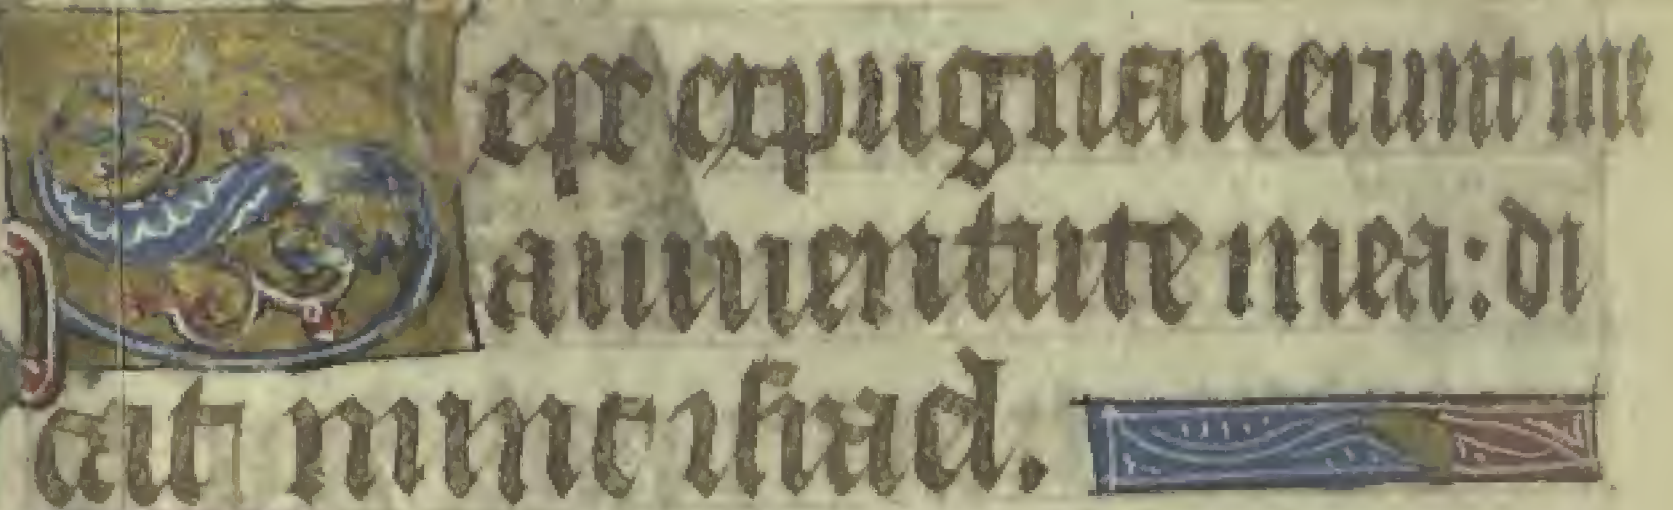 Sepe expugnauerunt me
a iuuentute mea: di
cat nunc israel.